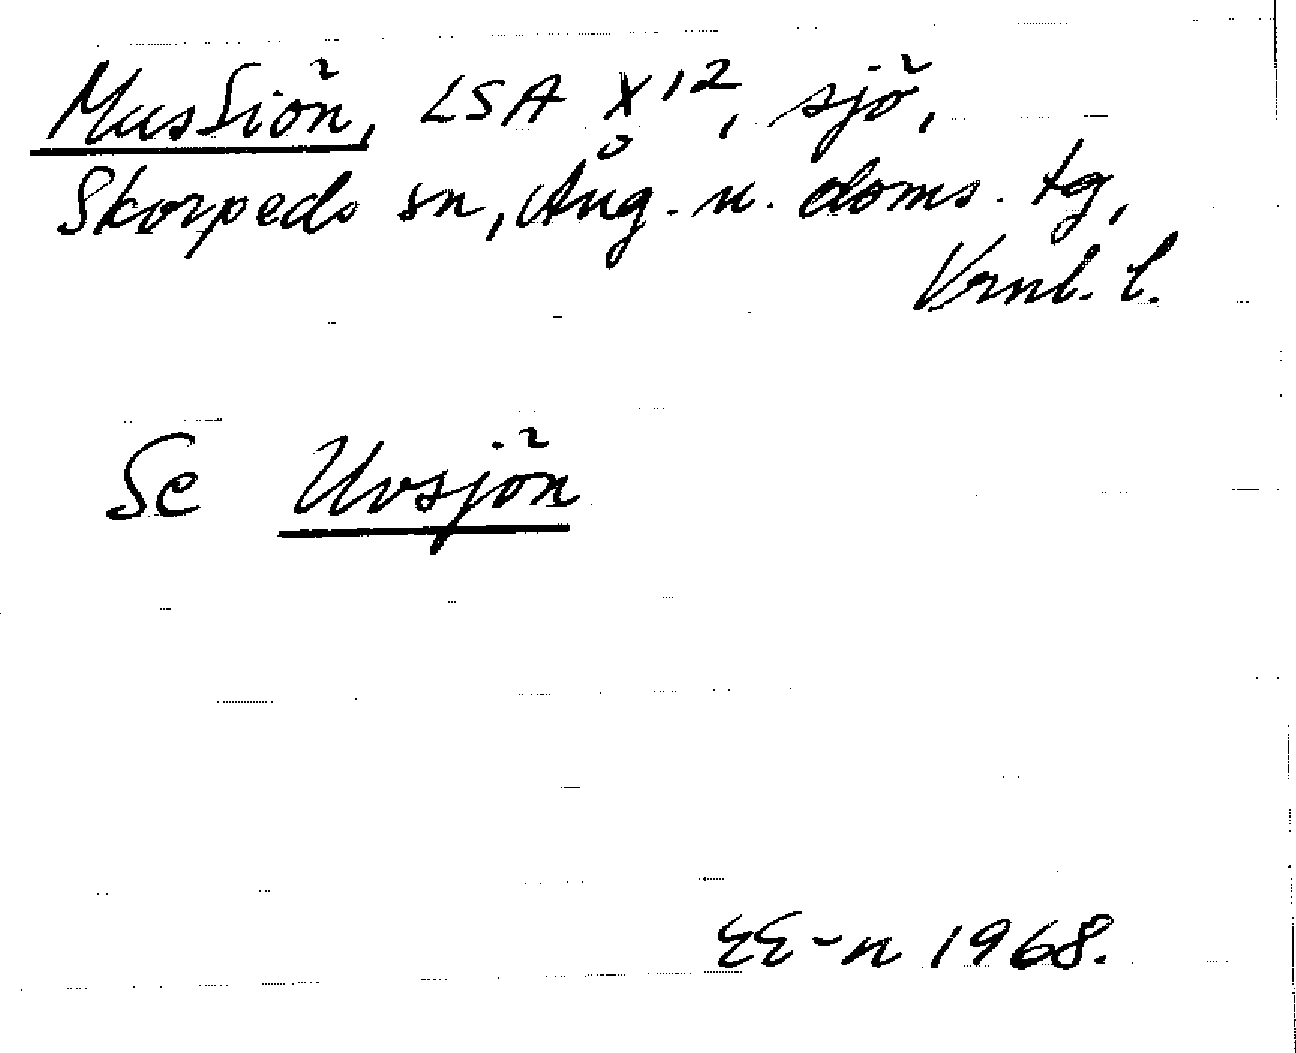 Mussiön, LSA X 12, sjö,
Skorpeds sn, Ång. n. doms. tg,
Vrnl. l.
Se Uvsjön
EE-n 1968.